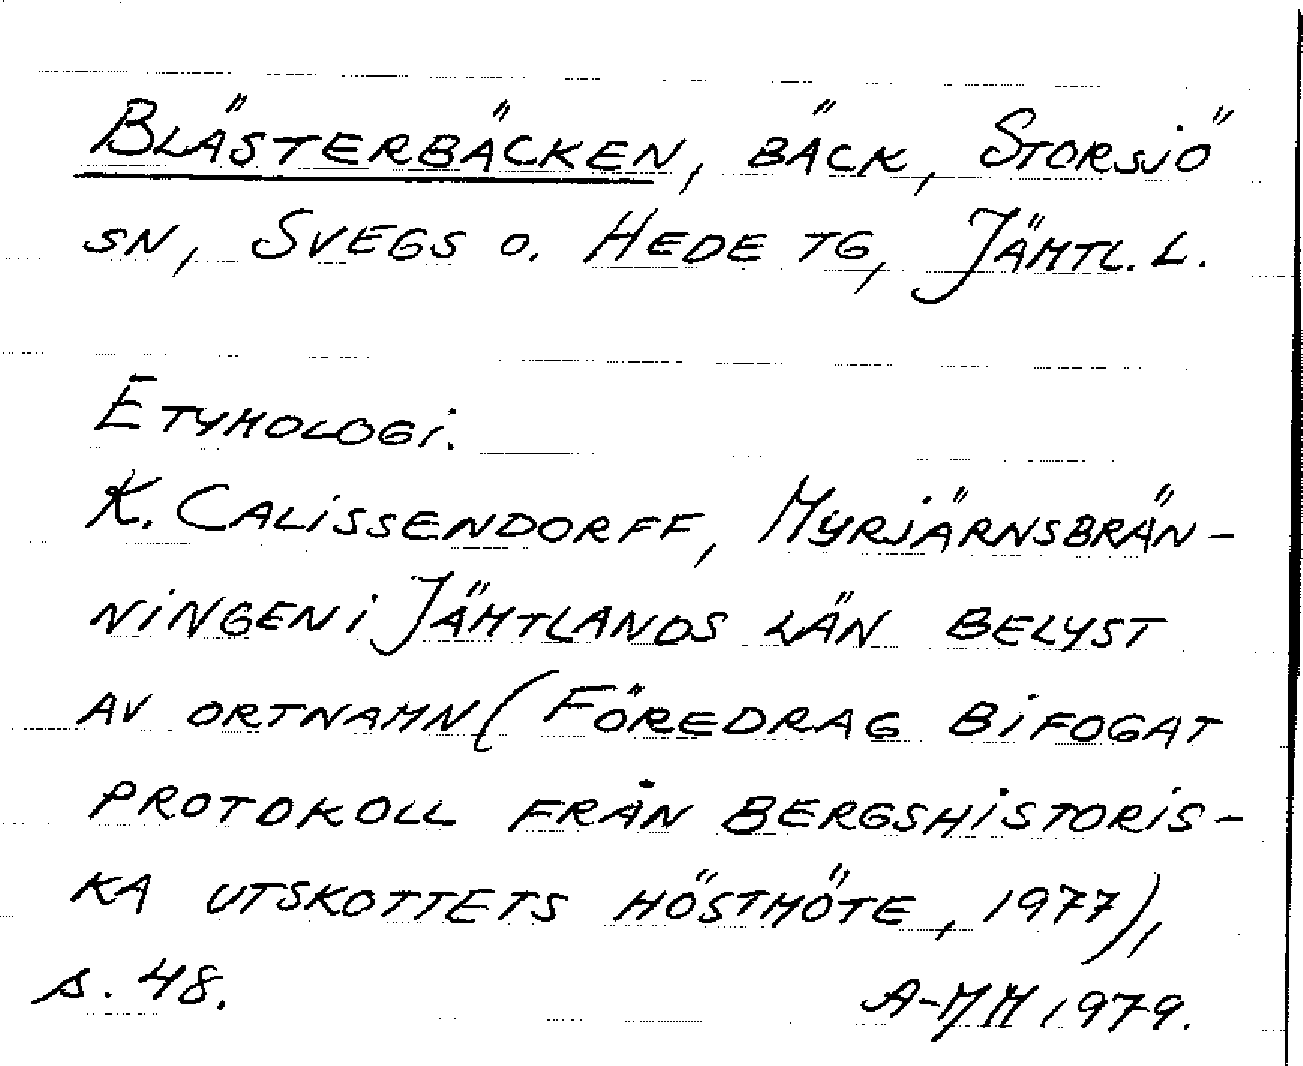 BLÄSTERBÄCKEN, BÄCK, STORSJÖ
SN, SVEGS O. HEDE TG, JÄMTL. L.
ETYMOLOGI.
K. CALISSENDORFF, MYRJÄRNSBRÄN-
NINGEN I JÄMTLANDS LÄN BELYST
AV ORTNAMN (FÖREDRAG BIFOGAT
PROTOKOLL FRÅN BERGSHISTORIS-
KA UTSKOTTETS HÖSTMÖTE, 1977),
s. 48. A-MM 1979.